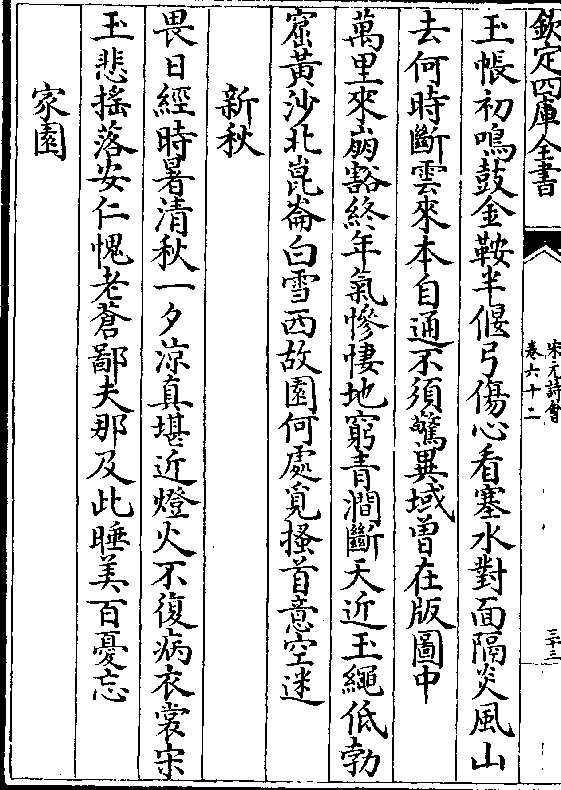 欽定四庫全書
宋元詩會
卷六十二
三十三
玉帳初鳴鼓金鞍半偃弓傷心看塞水對面隔炎風山
去何時斷雲來本自通不須驚異域曾在版圖中
萬里來崩豁終年氣慘悽地窮青澗斷天近玉繩低勃
窟黃沙北崑崙白雪西故園何處覓搔首意空迷
新秋
畏日經時暑清秋一夕涼真堪近燈火不復病衣裳宋
玉悲搖落安仁愧老蒼鄙夫那及此睡美百憂忘
家園